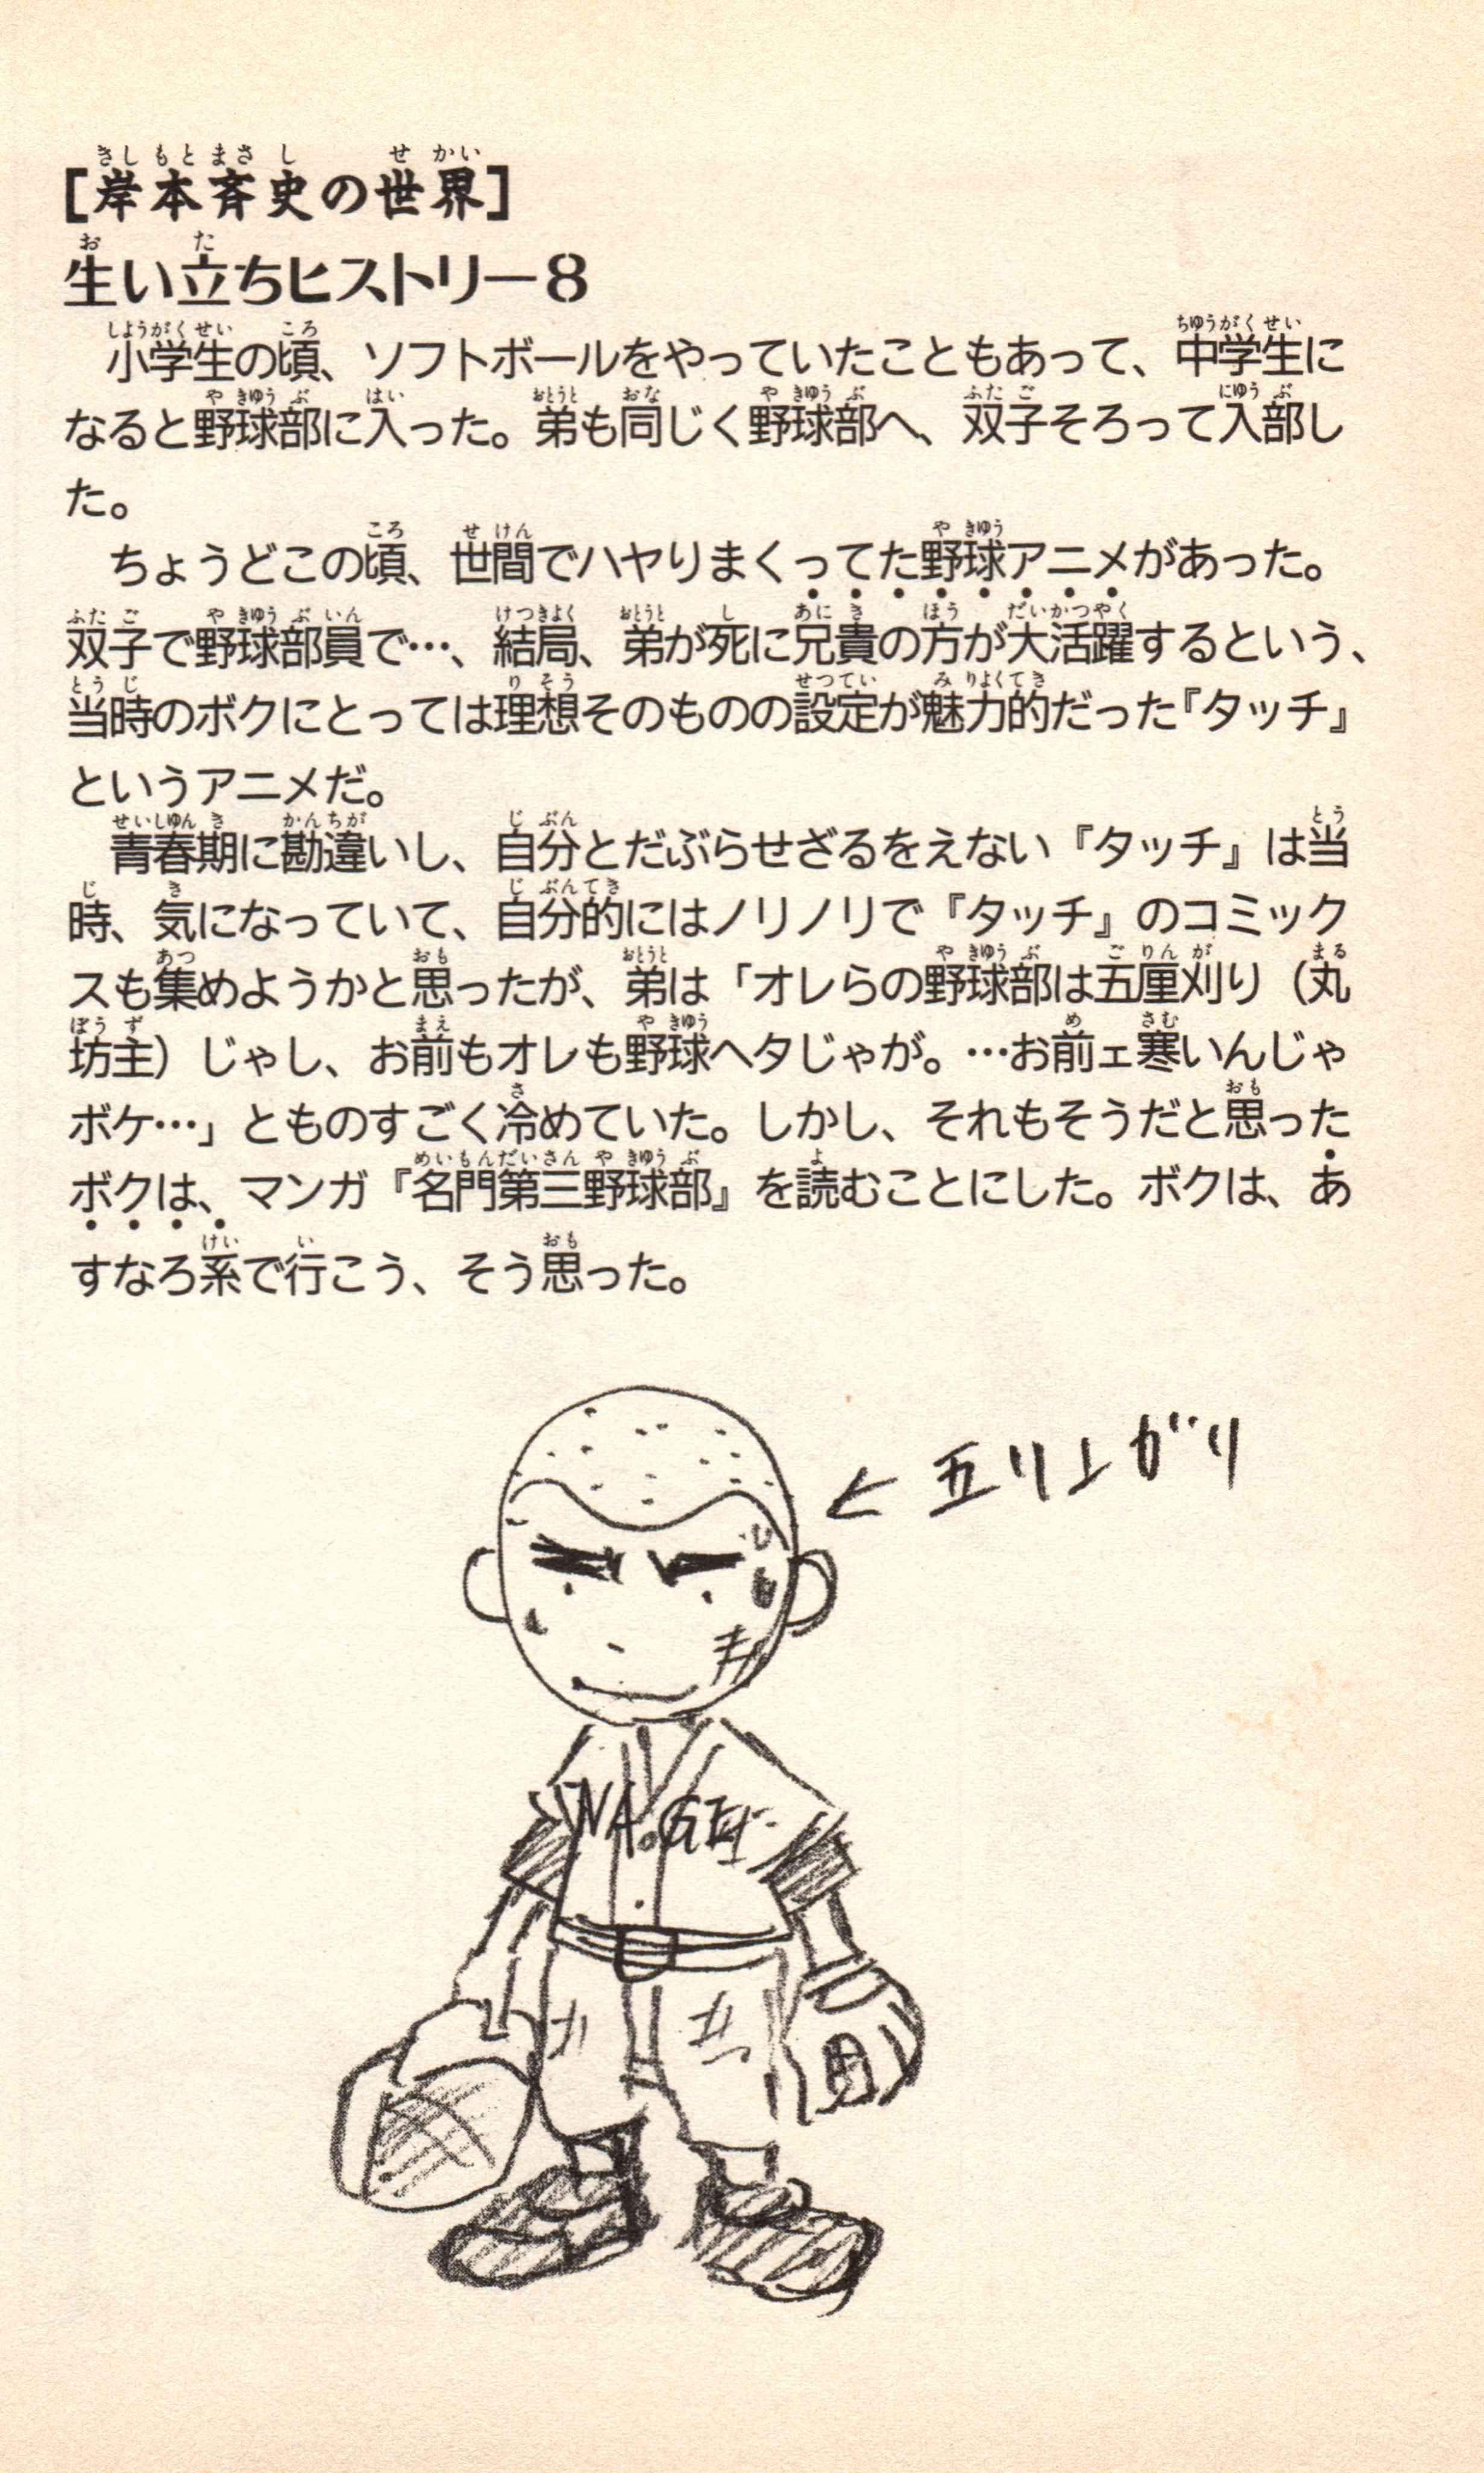 [岸本斉史の世界]
生い立ちヒストリー8
小学生の頃、ソフトボールをやっていたこともあって、中学生に
なると野球部に入った。弟も同じく野球部へ、双子そろって入部し
た。
ちょうどこの頃、世間でハヤりまくってた野球アニメがあった。
双子で野球部員で…、結局、弟が死に兄貴の方が大活躍するという、
当時のボクにとっては理想そのものの設定が魅力的だった『タッチ』
というアニメだ。
青春期に勘違いし、自分とだぶらせざるをえない『タッチ』は当
時、気になっていて、自分的にはノリノリで『タッチ』のコミック
スも集めようかと思ったが、弟は「オレらの野球部は五厘刈り（丸
坊主）じゃし、お前もオレも野球ヘタじゃが。…お前ェ寒いんじゃ
ボケ…」とものすごく冷めていた。しかし、それもそうだと思った
ボクは、マンガ『名門第三野球部』を読むことにした。ボクは、あ
すなろ系で行こう、そう思った。
←五リ上がり